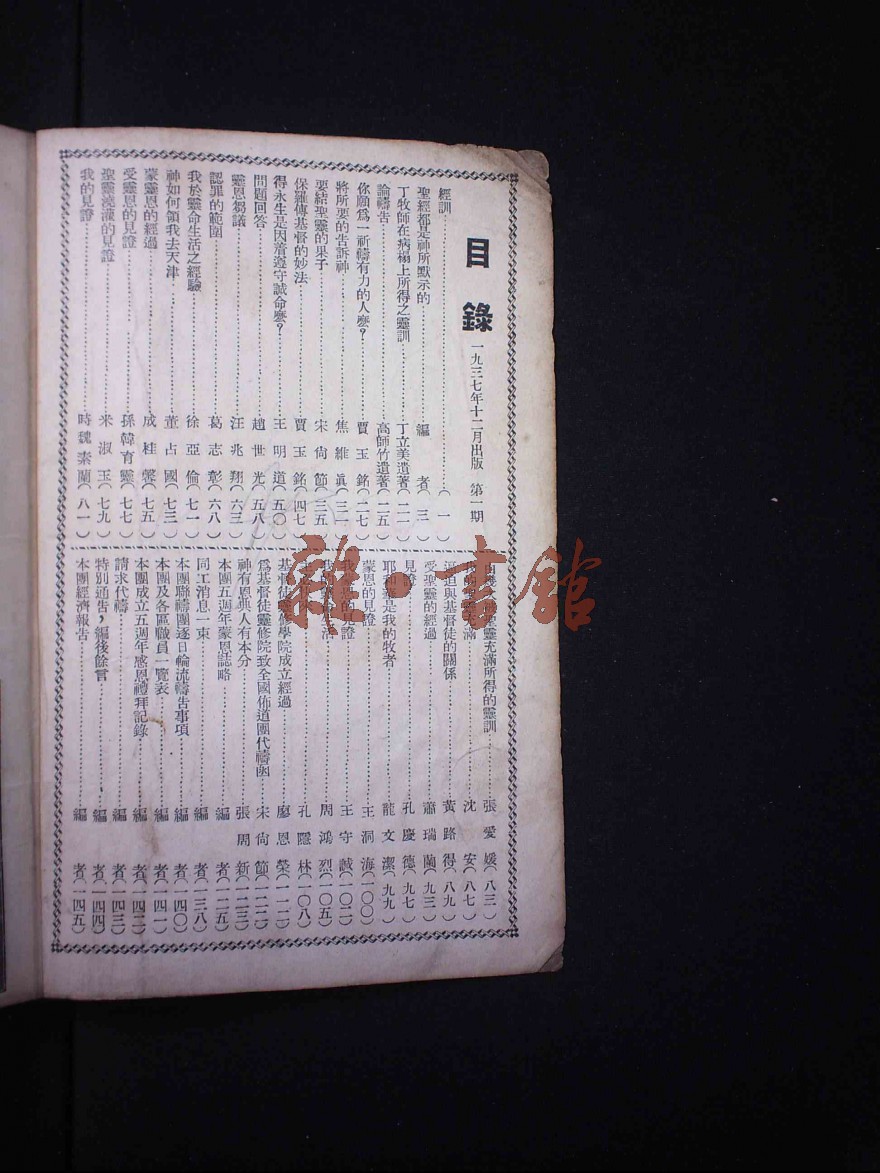 目錄 一九三七年十二月出版 第一期
經訓……(一)
聖經都是神所默示的……編者(三)
丁牧師在病榻上所得之靈訓……丁立美遺著(二一)
論禱告……高師竹遺著(二五)
你願爲一祈禱有力的人麼?……賈玉銘(二七)
將所要的告訴神……焦維眞(三一)
要結聖靈的果子……宋尙節(三五)
保羅傳基督的妙法……賈玉銘(四七)
得永生是因着遵守誡命麼?……王明道(五〇)
問題回答……趙世光(五八)
靈恩芻議……汪兆翔(六三)
認罪的範圍……葛志彰(六八)
我於靈命生活之經驗……徐亞倫(七一)
神如何領我去天津……董占國(七三)
蒙靈恩的經過……成桂馨(七五)
受靈恩的見證……孫韓育靈(七七)
聖靈澆灌的見證……米淑玉(七九)
我的見證……時魏素蘭(八一)
聖靈充滿所得的靈訓……張愛媛(八三)
充滿……沈安(八七)
逼迫與基督徒的關係……黃路得(八九)
受聖靈的經過……蕭瑞蘭(九三)
見證……孔慶德(九七)
耶和華是我的牧者……龍文潔(九九)
蒙恩的見證……王洞海(一〇〇)
我蒙恩的見證……王守誠(一〇二)
周鴻烈(一〇五)
孔隱林(一〇八)
基督徒靈修學院成立經過……廖恩榮(一一二)
爲基督徒靈修院致全國佈道團代禱函……宋尙節(一二二)
神有恩典人有本分……張周新(一二三)
本團五週年蒙恩誌略……編者(一二五)
同工消息一束……編者(一三八)
本團聯禱團逐日輪流禱告事項……編者(一四〇)
本團及各區職員一覽表……編者(一四一)
本團成立五週年感恩禮拜記錄……編者(一四二)
請求代禱……編者(一四三)
特別通告,編後餘言……編者(一四四)
本團經濟報告……編者(一四五)
雜·書館